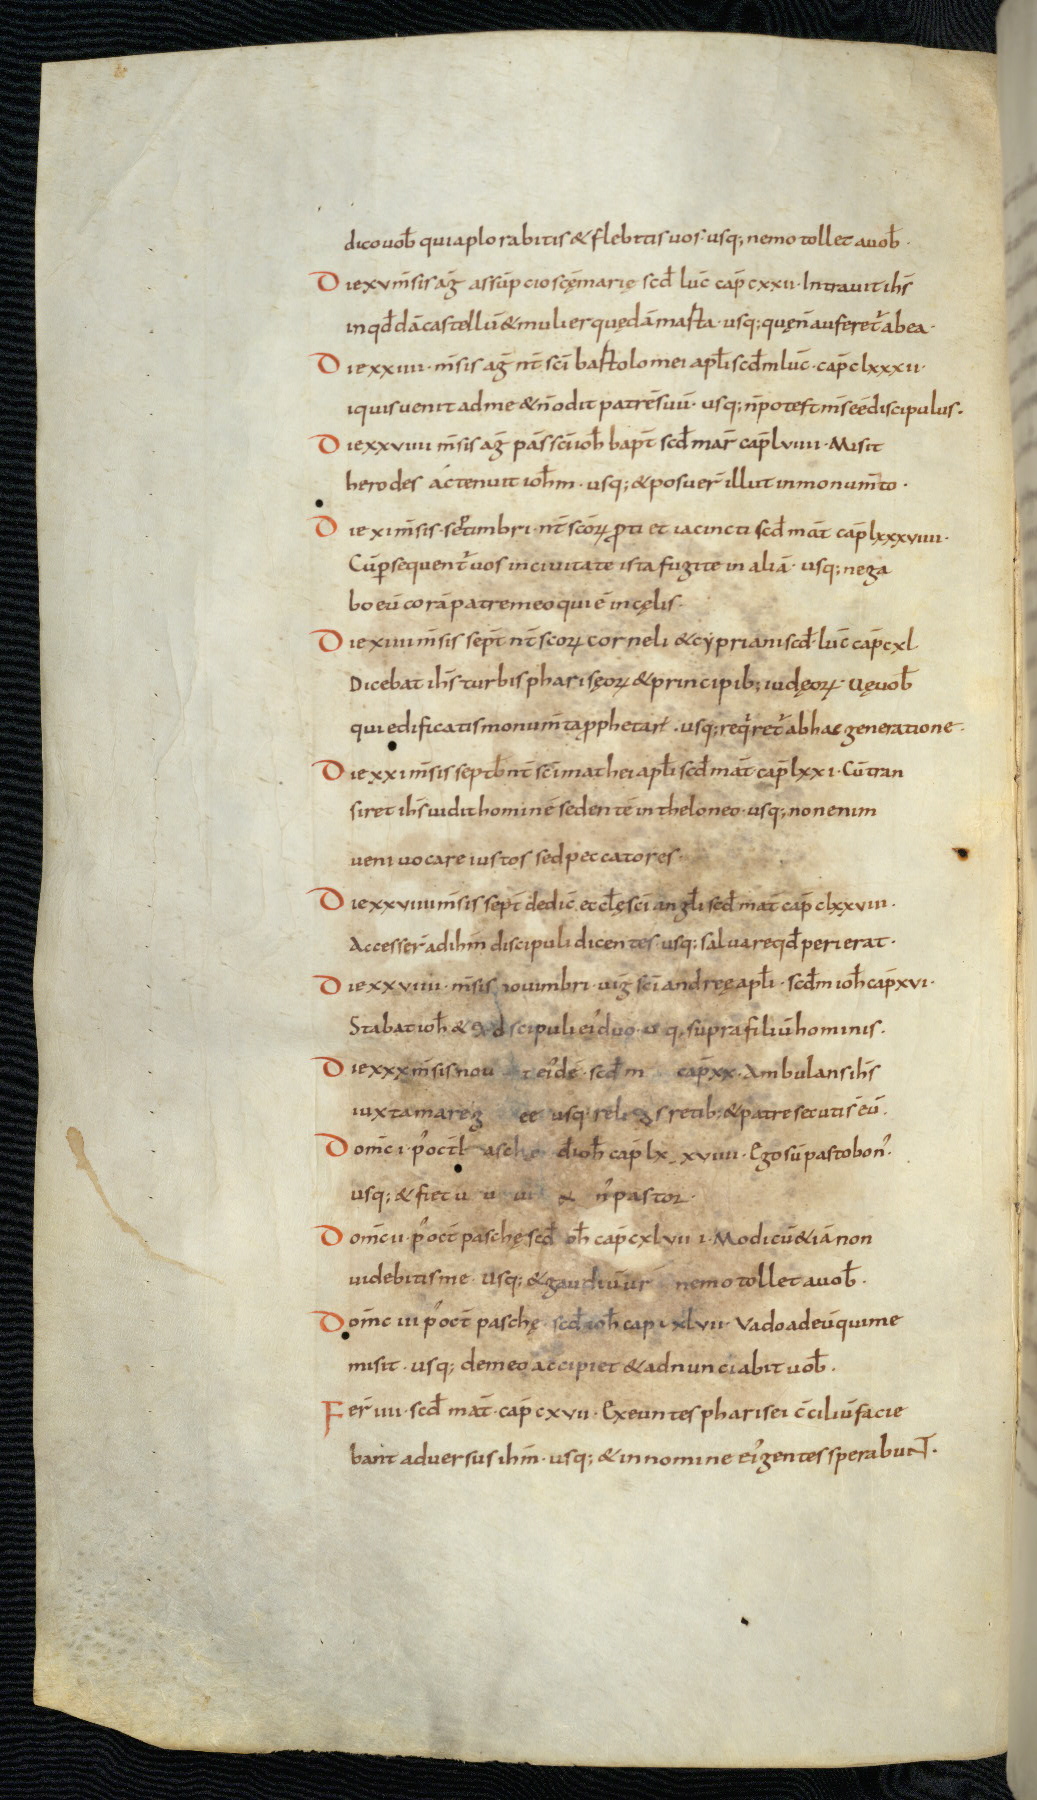 dico uob̄ quia plorabitis & flebitis uos· usq; nemo tollet a uob̄·
Die xv m̄sis aḡ assūpcio scę marię scd̄ luc̄ cap̄ cxxii· Intrauit ih̄s
in qd̄dā castellū & mulier quedā marta· usq; quę n̄ auferet̄ ab ea·
Die xxiiii· m̄sis aḡ nt̄ sc̄i bartolomei apl̄i scd̄m luc̄· cap̄ clxxxii·
iquis uenit ad me & n̄ odit patrē suū· usq; n̄ potest m̄s eē discipulus·
Die xxviiii m̄sis aḡ pas̄ sc̄i ioh̄ bapt̄ scd̄ mar̄ cap̄ lviiii· Misit
herodes ac tenuit ioh̄m· usq; & posuer̄ illut in monum̄to·
Die xi m̄sis· setimbri· nt̄ scōrꝝ proti et iacincti scd̄ mat̄ cap̄ lxxxviiii·
Cū p̱sequent̄ uos in ciuitate ista fugite in aliā· usq; nega
bo eū corā patre meo qui ē in cęlis·
Die xiiii m̄sis sept̄ nt̄ scorꝝ corneli & cypriani scd̄· luc̄ cap̄ cxl
Dicebat ih̄s turbis pharisęorꝝ & principib; iudęorꝝ· Uę uob̄
qui edificatis monum̄ta pphetarꝝ· usq; req̄ret̄ ab hac generatione·
Die xxi m̄sis septb̄ nt̄ sc̄i mathei apl̄i scd̄ mat̄ cap̄ lxxi· Cū tran
siret ih̄s uidit hominē sedentē in theloneo· usq; non enim
ueni uocare iustos sed peccatores·
Die xxviiii m̄sis sept̄ dedic̄ eccl̄ę sc̄i angl̄i scd̄ mat̄ cap̄ clxxviii·
Accesser̄ ad ih̄m discipuli dicentes· usq; saluare qd̄ perierat·
Die xxviiii· m̄sis nouimbri· uiḡ sc̄i andreę apl̄i· scd̄m ioh̄ cap̄ xvi·
Stabat ioh̄ & ex discipuli ei᾽ duo· u q, supra filiū hominis·
Die xxx m̄sis nou t ei᾽dē· scd̄ m cap̄ xx· Ambulans ih̄s
iuxta mare g ee usq· reli s retib; & patre secuti s̄ eū·
Dom̄c i· p᾽ oct̄ asche d̄ ioh̄ cap̄ lx xviiii· Ego sū pastor bon᾽·
usq; & fiet u & un᾽ pastor·
Dom̄c ii· p᾽ oct̄ paschę scd̄ oh̄ cap̄ cxlvii i· Modicū & iā non
uidebitis me· Usq; & gaudiū ur̄ nemo tollet a uob̄·
Dom̄c iii p᾽ oct̄ paschę scd̄ ioh̄ cap̄ xlvii· Vado ad eū qui me
misit· usq; de meo accipiet & adnunciabit uob̄·
Fer̄ iiii· scd̄ mat̄· cap̄ cxvii· Exeuntes pharisei c̄ciliū facie
bant aduersus ih̄m· usq; & in nomine ei᾽ gentes sperabunt·